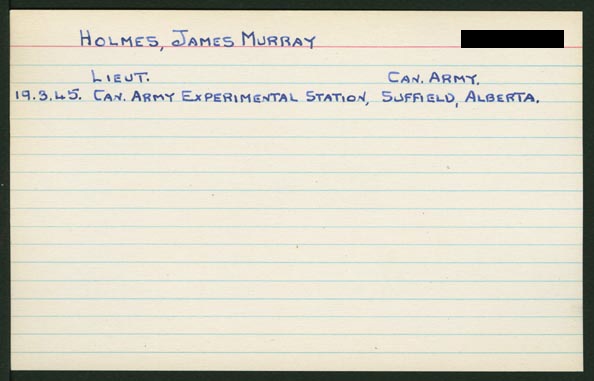 HOLMES, JAMES MURRAY
LIEUT. CAN. ARMY.
19.3.45. CAN. ARMY EXPERIMENTAL STATION, SUFFIELD, ALBERTA.